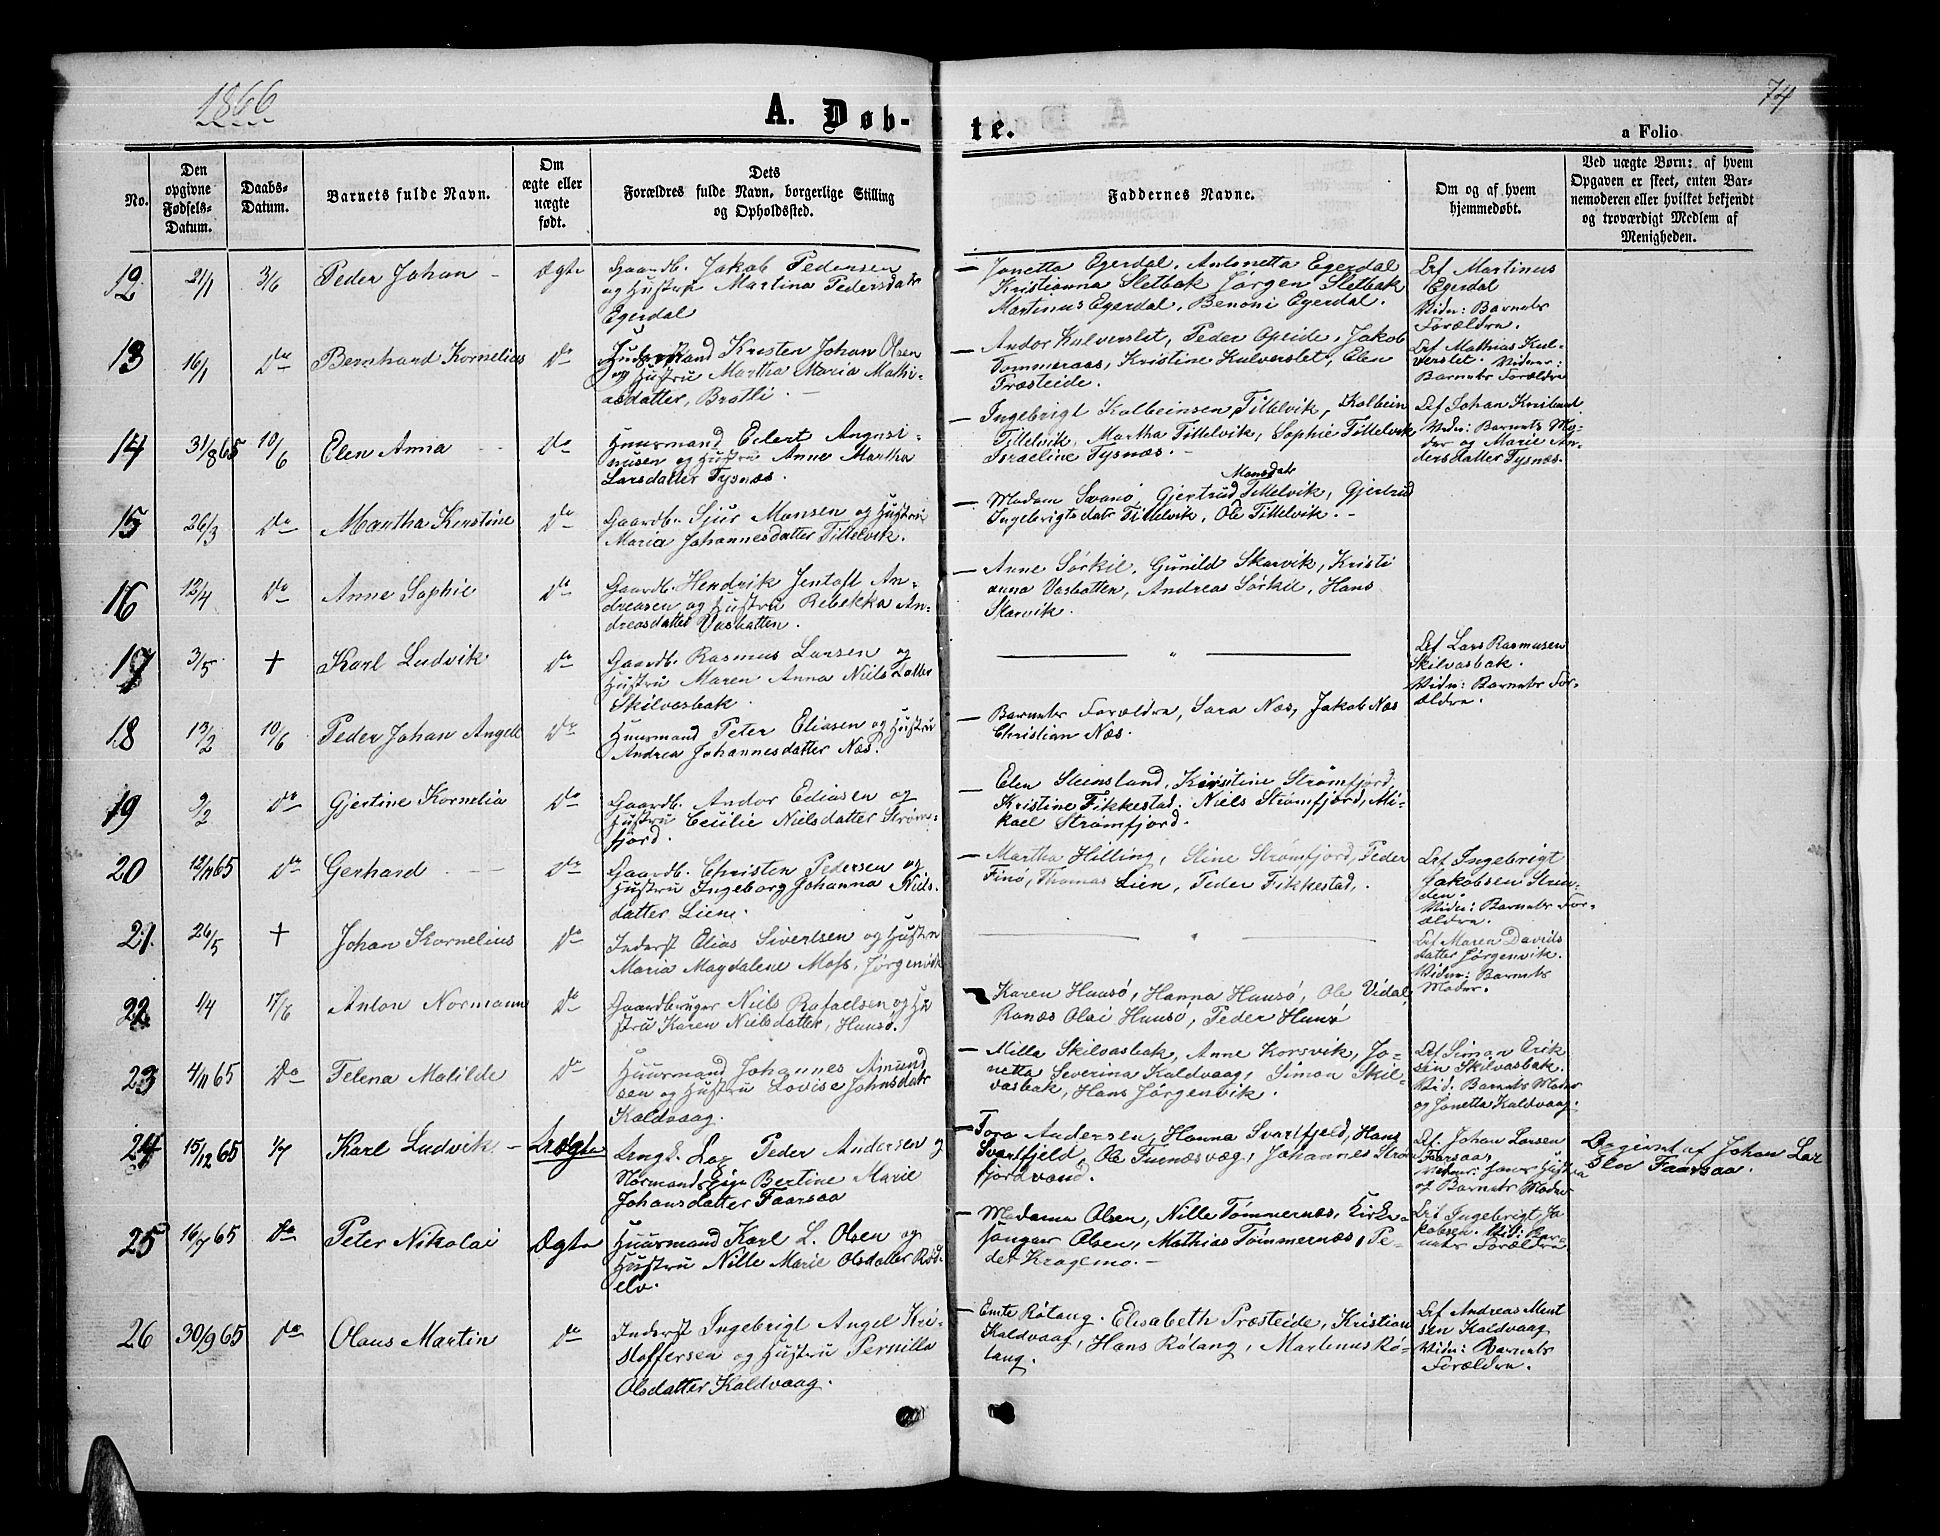 1866
74
A. Døb-
te.
a Folio
No.
Den opgivne Fødsels-Datum.
Daabs-Datum.
Barnets fulde Navn.
Om ægte eller uægte født.
Dets Forældres fulde Navn, borgerlige Stilling og Opholdssted.
Faddernes Navne.
Om og af hvem hjemmedøbt.
Ved uægte Børn: af hvem Opgaven er skeet, enten Barnemoderen eller hvilket bekjendt og troværdigt Medlem af Menigheden.
12 21/1 3/6 Peder Johan - Ægte
Gaardb. Jakob Pedersen
og Hustru Martina Pedersdatr
Egerdal
Jonetta Egerdal, Antonetta Egerdal
Kristianna Sletbak Jørgen Sletbak
Martinus Egerdal, Benoni Egerdal.
Martinus
Egerdal
Vidn: Barnets
Forældre.
13 16/1 Do Bernhard Kornelius Do
Kristen Johan Olsen
og Hustru Martha Maria Mathi-
asdatter, Bratli. -
Andor Kulverslet, Peder Opeide, Jakob
Tømmeraas, Kristine Kulverslet, Elen
Præsteide.
Mathias Kul-
verslet. Vidner:
Barnets Forældre
14 31/8 65 10/6 Elen Anna Do
Huusmand Eilert Angusi-
nusen og Hustru Anne Martha
Larsdatter Tysnæs.
Ingebrigt Kolbeinsen Tiltelvik, Kolbein
Tiltelvik, Martha Tiltelvik, Sophie Tiltelvik
Israeline Tysnæs. -
Johan
Vidn: Barnets Mo-
der og Marie An-
dersdatter Tysnæs.
15 26/3 Do Martha Kirstine Do
Gaardb. Sjur Monsen og Hustru
Maria Johannesdatter Tiltelvik.
Monsdatr
Madam Svanø, Gjertrud Tiltelvik, Gjertrud
Ingebrigtsdatr Tiltelvik, Ole Tiltelvik. -
16 12/4 Do Anne Sophie Do
Gaardb. Hendrik Jentoft An-
dreasen og Hustru Rebekka An-
dreasdatter Vasbatten.
Anne Sørkil, Gunild Skarvik, Kristi
anna Vasbotten, Andrea Sørkil, Hans
Skarvik.
17 3/5 + Karl Ludvik Do
Gaardb. Rasmus Larsen og
Hustru Maren Anna Niels Datter
Skilvasbak
Lars Rasmusen
Skilvasbak.
Vidn: Barnets For-
ældre.
18 13/2 10/6 Peder Johan Angell Do
Huusmand Peter Eliasen og Hustru
Andrea Johannesdatter Næs.
Barnets Forældre, Sara Næs, Jakob Næs
Christian Næs.
19 9/2 Do Gjertine Kornelia Do
Gaardb. Andor Ediasen og
Hustru Cecilie Nielsdatter Strøm-
fjord.
Elen Steensland, Kirstine Strømfjord,
Kristine Fikkestad, Niels Strømfjord, Mi-
kael Strømfjord.
20 12/11 65 Do Gerhard Do
Gaardb. Christen Pedersen og
Hustru Ingeborg Johanna Niels-
datter Liene.
Martha Hilling, Stine Strømfjord, Peder
Finø, Thomas Lien, Peder Fikkestad.
Ingebrigt
Jakobsen
Vidn: Barnets For-
ældre.
21 26/5 + Johan Kornelius Do
Inderst Elias Sivertsen og Hustru
Maria Magdalene Moss, Jørgenvik
Maren Davids
datter Jørgenvik.
Vidn: Barnets
Moder.
22 1/4 17/6 Anton Normann Do
Gaardbruger Niels Rafaelsen og Hu
stru Karen Nielsdatter, Hunsø.
Karen Hunsø, Hanna Hunsø, Ole Vidal
Olai Hunsø, Peder Hunsø
23 4/11 65 Do Telena Matilde Do
Huusmand Johannes Amund
sen og Hustru Lovise Johnsdatr
Kaldvaag.
Milla Skilvasbak, Anne Korsvik, Jo-
netta Severina Kaldvaag, Simon Skil-
vasbak, Hans Jørgenvik.
Simon Erik
sen Skilvasbak.
Vid. Barnets Moder
og Jonetta Kaldvaag.
24 15/12 65 1/7 Karl Ludvik - Uægte
Peder Andersen og
Bertine Marie
Johansdatter Faarsaa
Tora Andersen, Hanna Svartfjeld, Hans
Svartfjeld, Ole Furnæsvæg, Johannes Strøm
fjordvand.
Johan Larsen
Faarsaa
Vidner: hans Hustru
og Barnets Moder
Opgivet af Johan Lar
sen Faarsaa.
25 16/7 65 Do Peter Nikolai Ægte
Huusmand Karl L. Olsen og
Hustru Nille Marie Olsdatter Rød-
elv.
Madame Olsen, Nille Tømmernæs, Kirke-
sanger Olsen, Mathias Tømmernæs, Pe-
der Kragemo. -
Ingebrigt Ja
kobsen. Vid: Bar-
nets Forældre
26 30/9 65 Do Olaus Martin Do
Inderst Ingebrigt Angel Kri-
stoffersen og Hustru Pernilla
Olsdatter Kaldvaag.
Emte Røtang. Elisabeth Præsteide, Kristian
Kaldvaag, Hans Røtang, Martenus Rø-
tang.
Andreas Ment
sen Kaldvaag
Vidn: Barnets
Forældre.